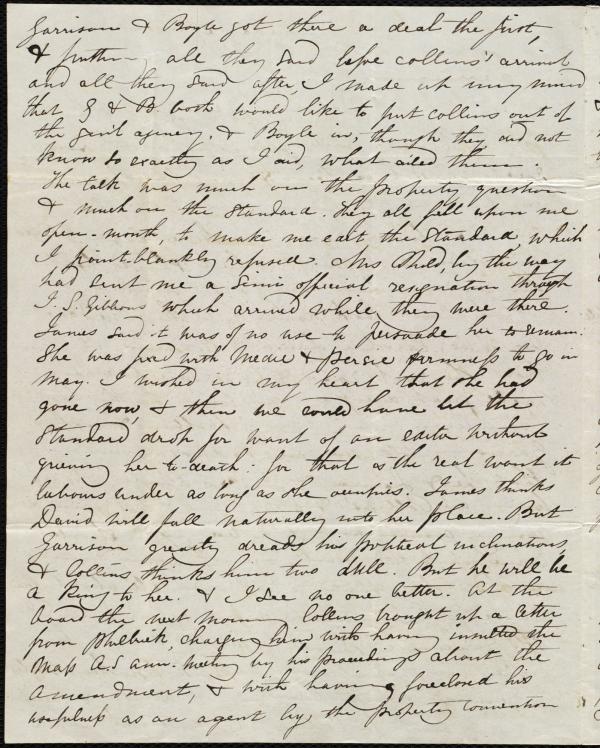 Garrison & Boyle got there a deal the first,
& further all they said before Collins' arrival
and all they said after, I made up my mind
that G & B. both would like to put Collins out of
the Gen'l agency, & Boyle in; though they did not
know so exactly as I did, what ailed them.
The talk was much on the property question
& much on the Standard. They all fell upon me
open-mouth, to make me edit the Standard, which
I point-blankly refused. Mrs Child, by the way
had sent me a semi official resignation through
J. S. Gibbons which arrived while they were there.
James said it was of no use to persuade her to remain.
She was fixed with Mede & Persic firmness to go in
May. I wished in my heart that she had
gone now, & then we could have let the
Standard drop for want of an editor without
grieving her to-death: for that is the real want it
labours under as long as she occupies. James thinks
David will fall naturally into her place. But
Garrison greatly dreads his political inclinations,
& Collins thinks him two dull. But he will be
a King to her. & I see no one better. At the
board the next morning Collins brought up a letter
from Philbrick, charging him with having insulted the
Mass A.S ann. meeting by his proceedings about the
amendment, & with having foreclosed his
usefulness as an agent by the property convention